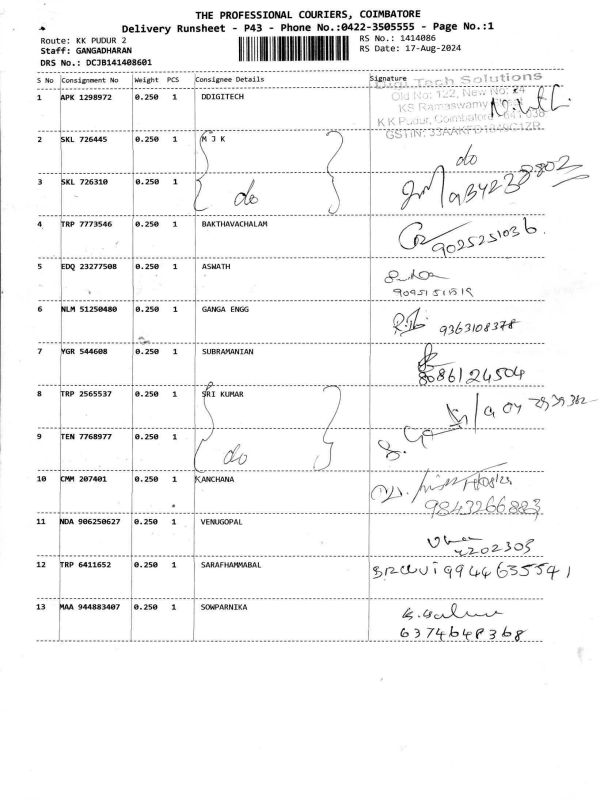 THE PROFESSIONAL COURIERS, COIMBATORE
Delivery Runsheet - P43 - Phone No.:0422-3505555 - Page No.:1
Route: KK PUDUR 2 RS No.: 1414086
Staff: GANGADHARAN RS Date: 17-Aug-2024
DRS No.: DCJB141408601
S No Consignment No Weight PCS Consignee Details Signature
Digi Tech Solutions
1 APK 1298972 0.250 1 DDIGITECH
Old No: 122, New No: 24
KS Ramaswamy Street
K K Pudur, Coimbatore - 641 038
GSTIN:
2 SKL 726445 0.250 1 M J K
do
3 SKL 726310 0.250 1 do
4 TRP 7773546 0.250 1 BAKTHAVACHALAM
9025251036
5 EDQ 23277508 0.250 1 ASWATH
6 NLM 51250480 0.250 1 GANGA ENGG
9363108378
7 YGR 544608 0.250 1 SUBRAMANIAN
8086124504
8 TRP 2565537 0.250 1 SRI KUMAR
9 TEN 7768977 0.250 1 do
10 CMM 207401 0.250 1 KANCHANA
9843266883
11 NDA 906250627 0.250 1 VENUGOPAL
12 TRP 6411652 0.250 1 SARAFHAMMABAL
9944635541
13 MAA 944883407 0.250 1 SOWPARNIKA
6374648368